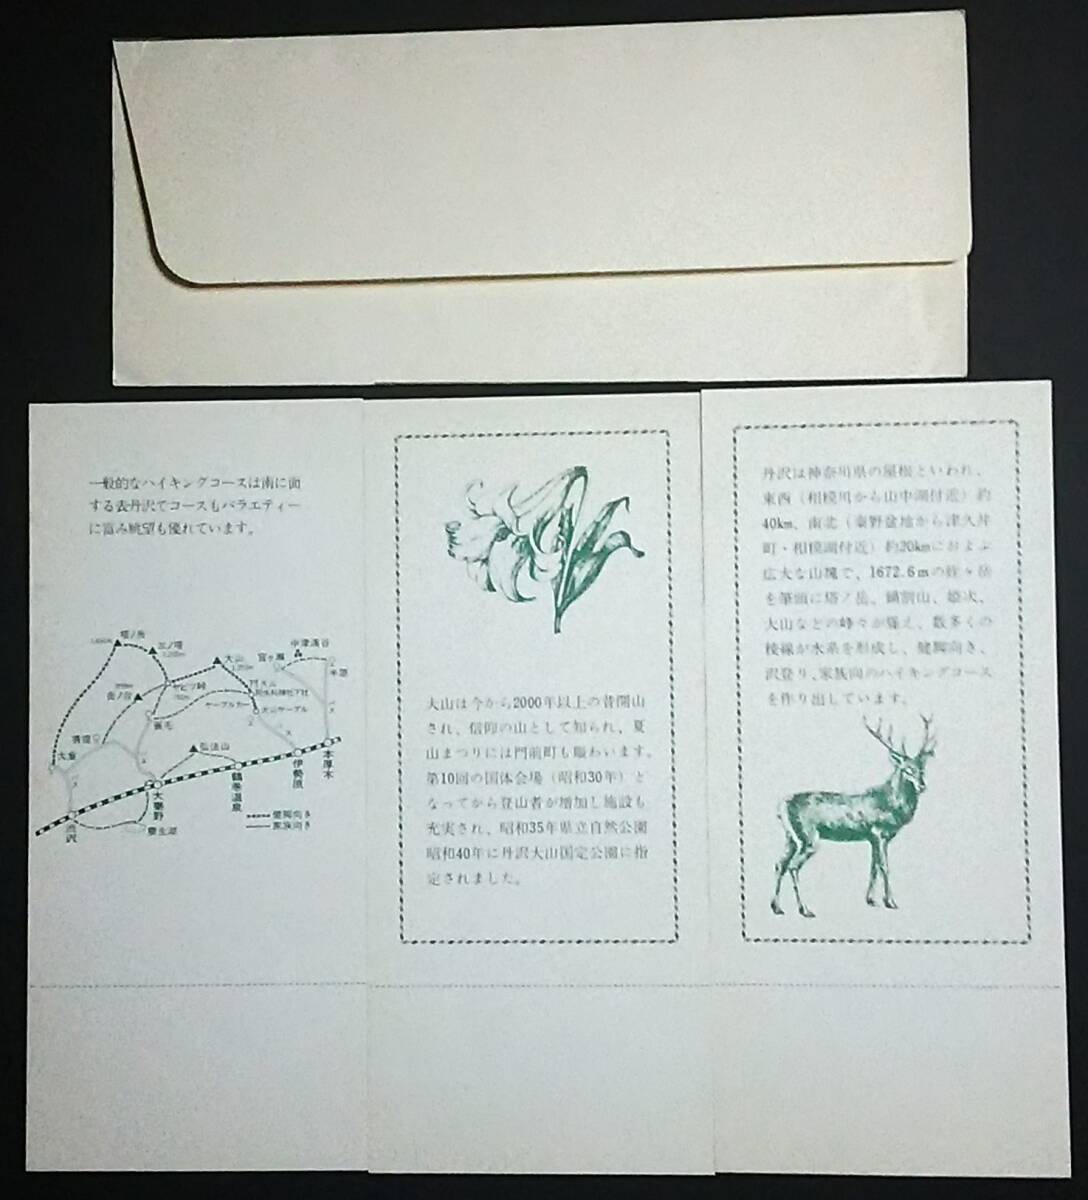 一般的なハイキングコースは南に面
する表丹沢でコースもバラエティー
に富み眺望も優れています。
塔ノ岳
三ノ塔
1,205m
大山
宮ヶ瀬
中津渓谷
半原
ヤビツ峠
岳ノ台
蓑毛
ケーブルカー
大山ケーブル
大倉
弘法山
本厚木
伊勢原
鶴巻温泉
大秦野
渋沢
震生湖
健脚向き
家族向き
大山は今から2000年以上の昔開山
され、信仰の山として知られ、夏
山まつりには門前町も賑わいます。
第10回の国体会場（昭和30年）と
なってから登山者が増加し施設も
充実され、昭和35年県立自然公園
昭和40年に丹沢大山国定公園に指
定されました。
丹沢は神奈川県の屋根といわれ、
東西（相模川から山中湖付近）約
40km、南北（秦野盆地から津久井
町・相模湖付近）約20kmにおよぶ
広大な山塊で、1672.6mの蛭ヶ岳
を筆頭に塔ノ岳、鍋割山、姫次、
大山などの峰々が聳え、数多くの
稜線が水系を形成し、健脚向き、
沢登り、家族向のハイキングコース
を作り出しています。